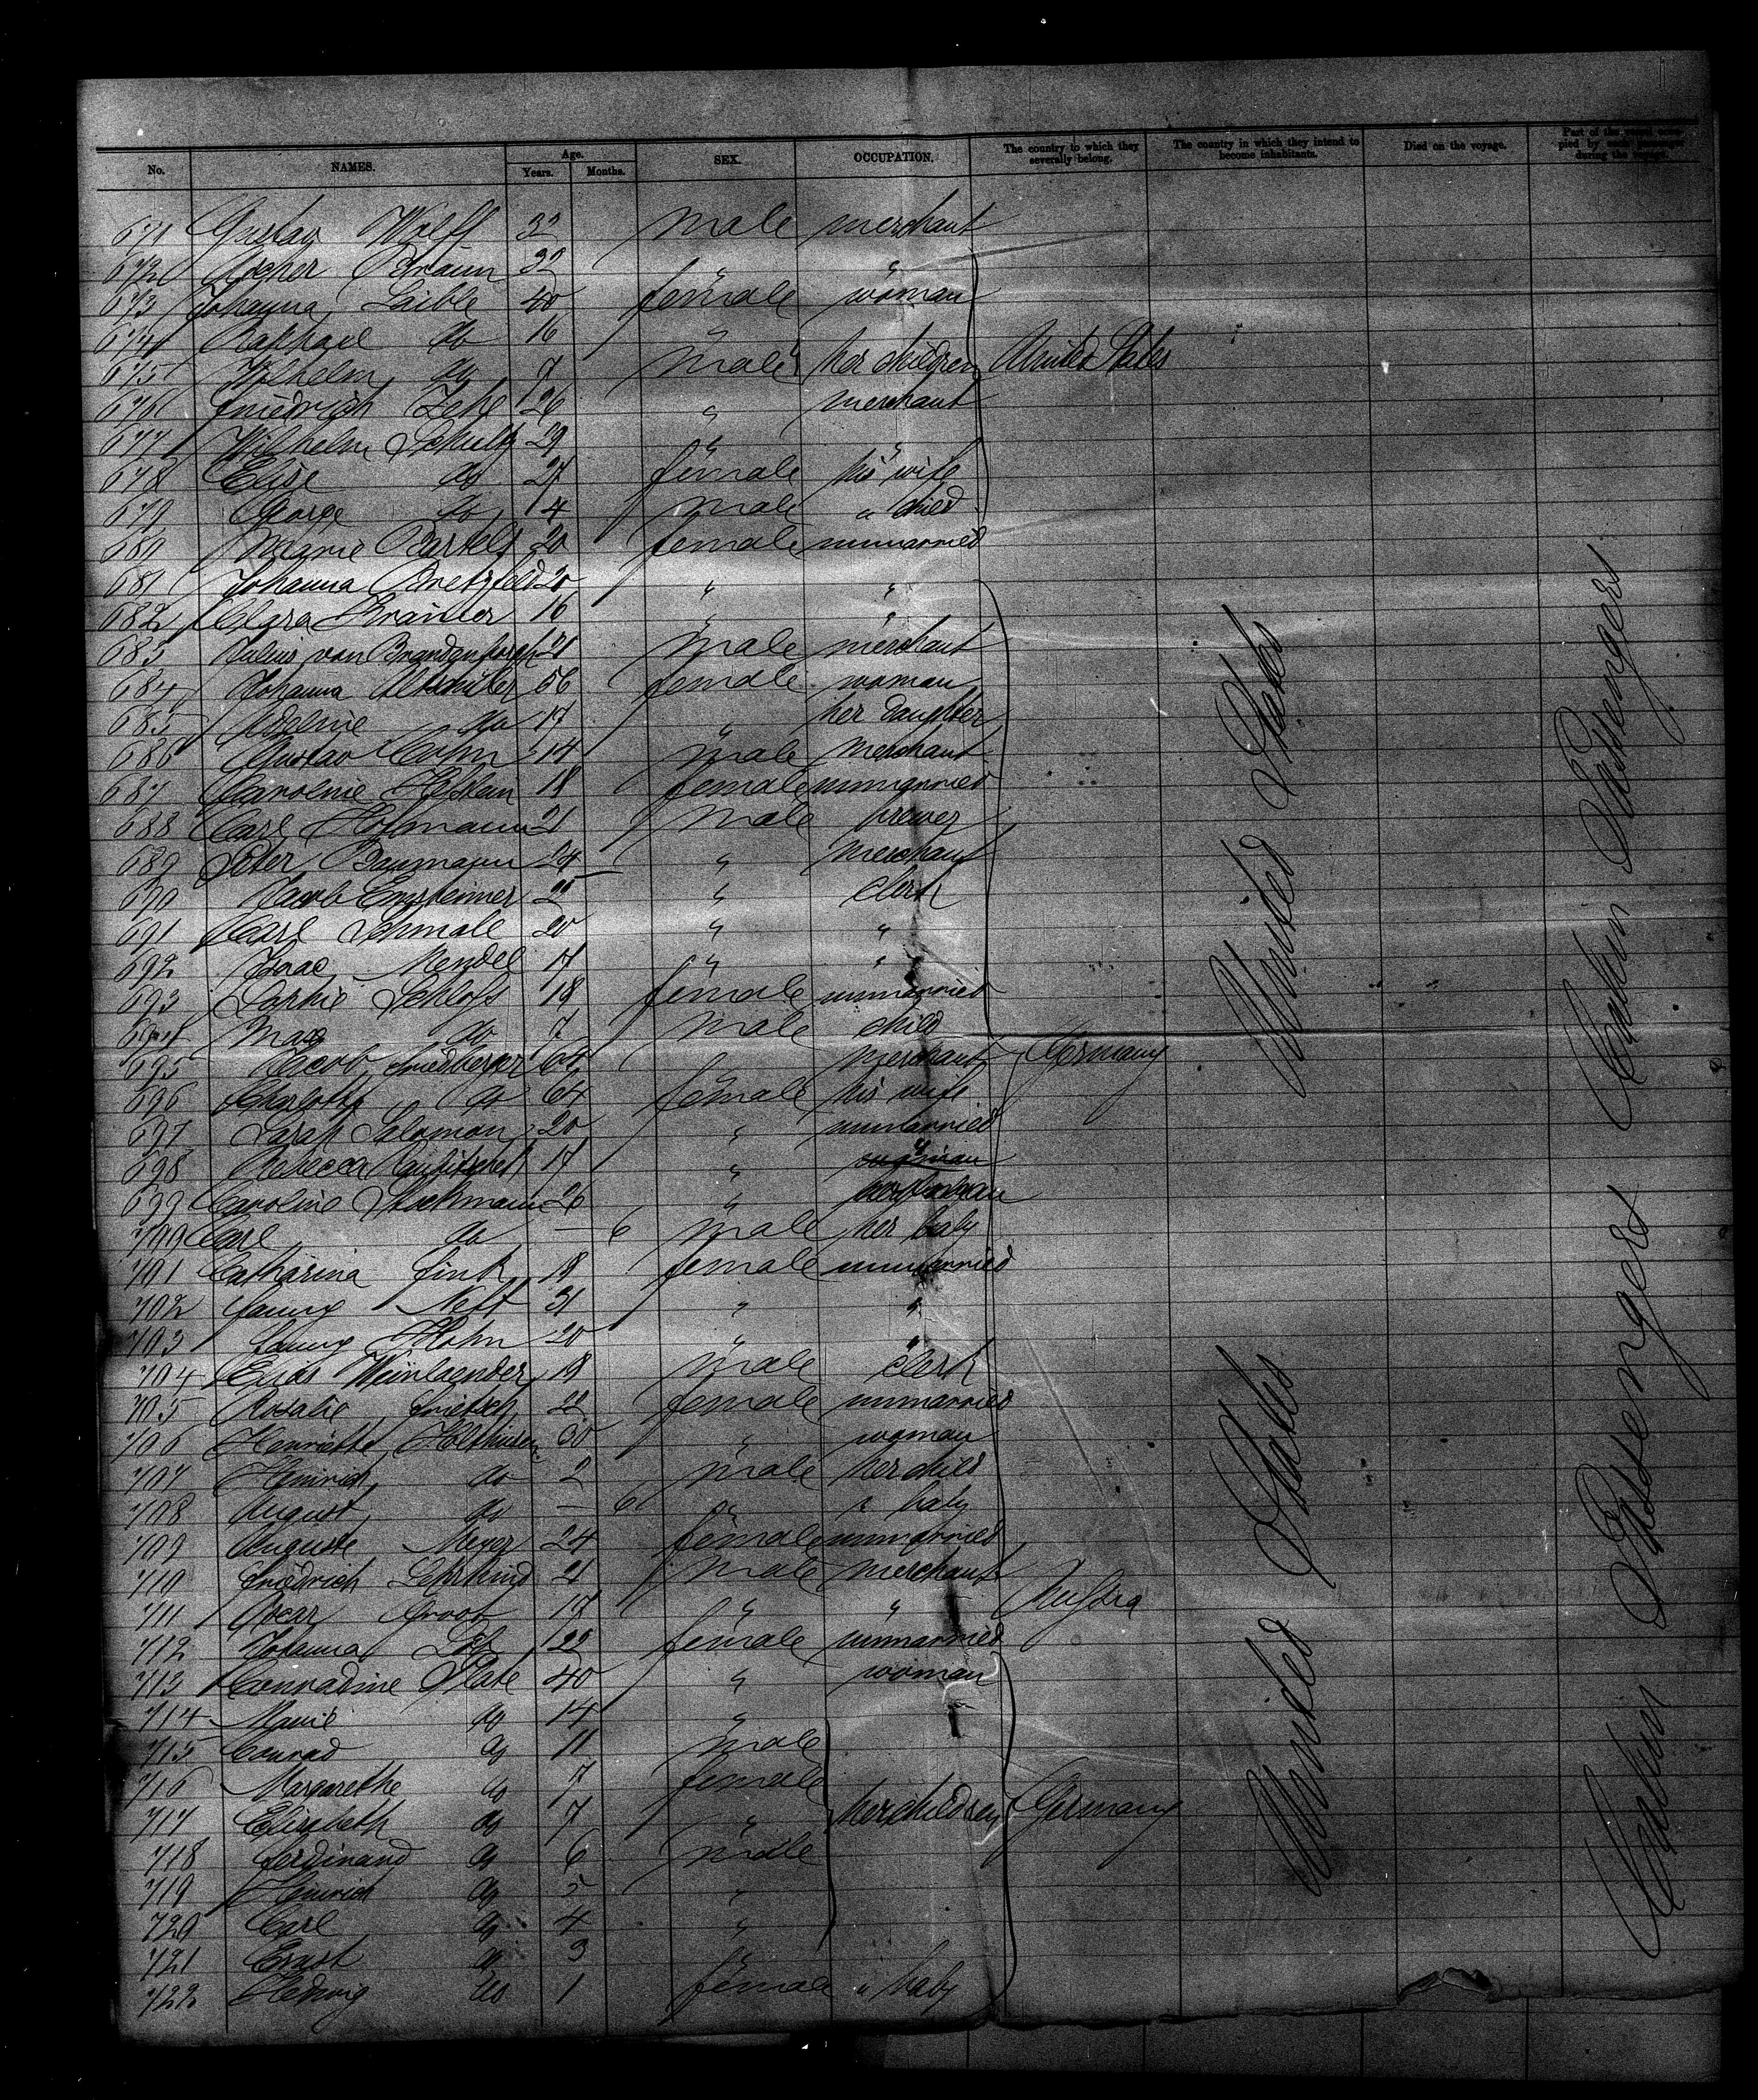 No. NAMES. Age. Years. Months. SEX. OCCUPATION. The country to which they severally belong. The country in which they intend to become inhabitants. Died on the voyage. Part of the vessel occupied by each passenger during the voyage.
671 Gustav Wolff 32 male merchant
672 Braun 32 " "
673 Johanna Laible 40 female woman
674 Raphael do 16
675 Wilhelm do 7 male her children United States
676 Friedrich 26 " merchant
677 Wilhelm Schultz 29 " "
678 Elise do 27 female his wife
679 George do 4 male " child
680 Marie Bartels 20 female unmarried
681 Johanna Bretzfeld 20 " "
682 Clara Kramer 16 " "
683 Julius von Brandenborgh 21 male merchant
684 Johanna 56 female woman
685 do 17 " her daughter
686 Gustav Cohn 14 male merchant
687 Caroline 18 female unmarried
688 Carl Hofmann 21 male brewer
689 Peter Baumann 24 " merchant
690 Jacob 25 " clerk
691 Carl Schmale 20 " "
692 Isaac Mendel 17 " "
693 Schloss 18 female unmarried
694 Max do 7 male child
695 Jacob Friedberger 64 " merchant Germany
696 Charlotte do 64 female his wife
697 Sarah Salomon 20 " unmarried
698 Rebecca 17 "
699 Caroline 26 "
700 Carl do — 6 male her baby
701 Catharina Fink 18 female unmarried
702 Fanny Neft 31 " "
703 Fanny Hahn 20 " "
704 Weinlaender 18 male clerk
705 Rosalie 22 female unmarried
706 Henriette Holthusen 30 " woman
707 Heinrich do 2 male her child
708 August do — 6 " " baby
709 Auguste Meyer 24 female unmarried
710 Friedrich Lehrkind 21 male merchant
711 Oscar Groot 17 " " Russia
712 Johanna 22 female unmarried
713 Conradine Plate 40 " woman
714 Marie do 14 "
715 Conrad do 11 male
716 Margarethe do 7 female
717 Elizabeth do 7 " her children Germany
718 Ferdinand do 6 male
719 Heinrich do 5 "
720 Carl do 4 "
721 Ernst do 3 "
722 Hedwig do 1 female " baby
United States
United States
Cabin Passengers
Cabin Passengers